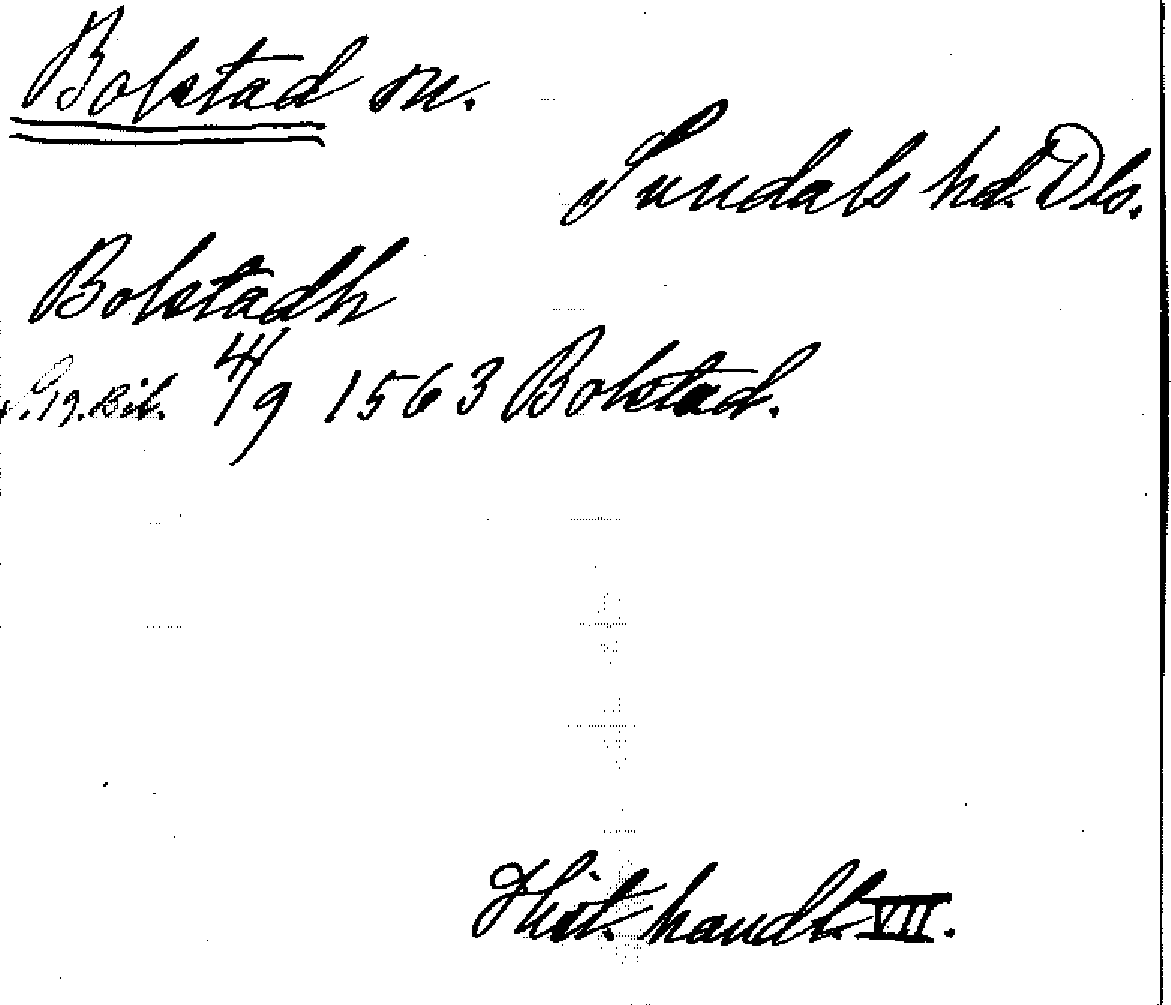 Bolstad sn.
Sundals hd. Dls.
Bolstadh
4/9 1563 Bolstad.
Hist. handl. VII.